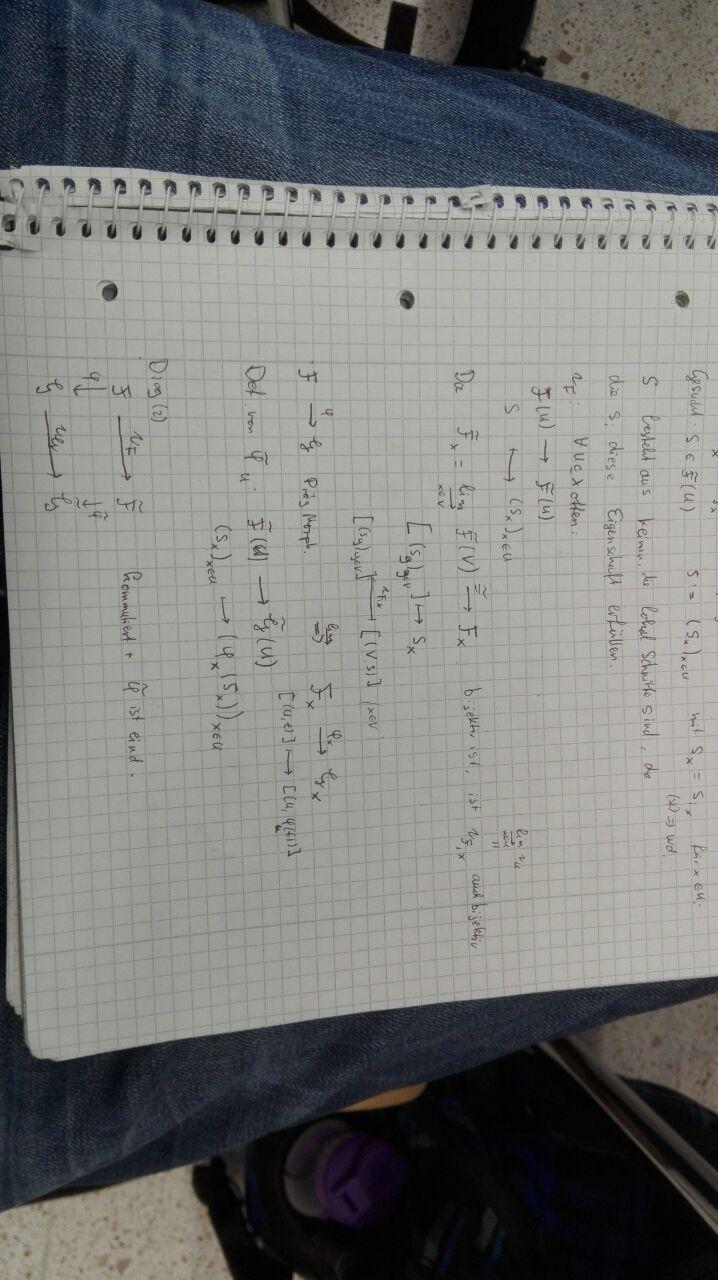 x ix
Gesucht: S ∈ F̃(U) S := (S_x)_{x∈U} mit S_x = S_{i,x} für x ∈ U_i
(*) ⇒ wd.
S besteht aus Keimen, die lokal Schnitte sind, da
die S_i diese Eigenschaft erfüllen.
ι_F: ∀ U ⊂ X offen:
F(U) → F̃(U)
S ↦ (S_x)_{x∈U}
lim_{→ x∈U} ι_U
"
Da F̃_x = lim_{→ x∈V} F̃(V) →^{≅} F_x bijektiv ist, ist ι_{F,x} auch bijektiv
[(S_y)_{y∈V}] ↦ S_x
[(S_y)_{y∈V}] ←^{ι_{F,x}} [(V,S)] (x∈V)
· F →^φ G Präg. Morph. ⇒^{lim} F_x →^{φ_x} G_x
[(U,t)] ↦ [(U, φ_U(t))]
Def. von φ̃_U: F̃(U) → G̃(U)
(S_x)_{x∈U} ↦ (φ_x(S_x))_{x∈U}
· Diag (2)
F →^{ι_F} F̃
φ↓ ↓φ̃ kommutiert + φ̃ ist eind.
G →^{ι_G} G̃